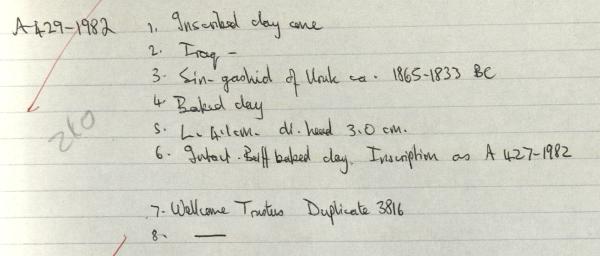 A 429-1982 1. Inscribed clay cone
2. Iraq -
3. Sin-gashid of Uruk ca. 1865-1833 BC
4 Baked clay
5. L. 4.1cm. di. head 3.0 cm.
210
6. Intact. Buff baked clay. Inscription as A 427-1982
7. Wellcome Trustees Duplicate 3816
8. —